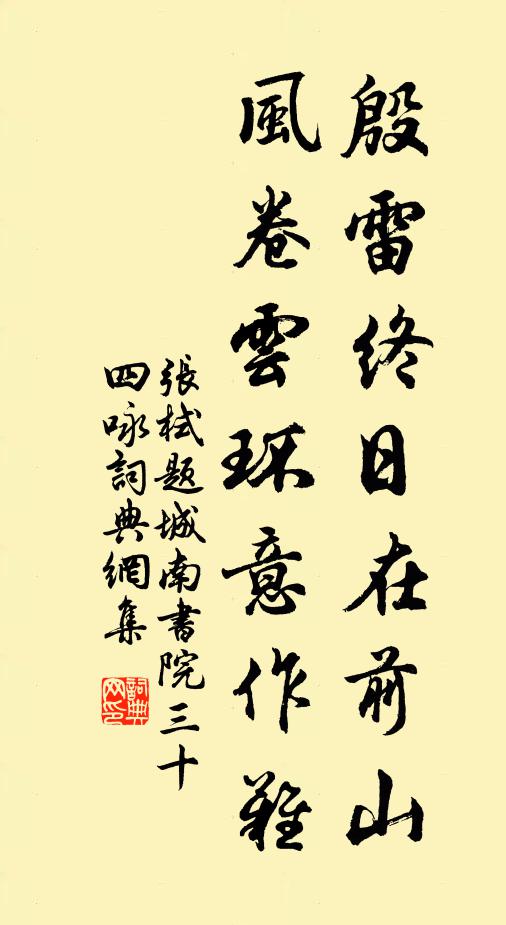 殷雷終日在前山
風卷雲环意作難
張栻題城南書院三十
四咏詞典網集
詞典
网印